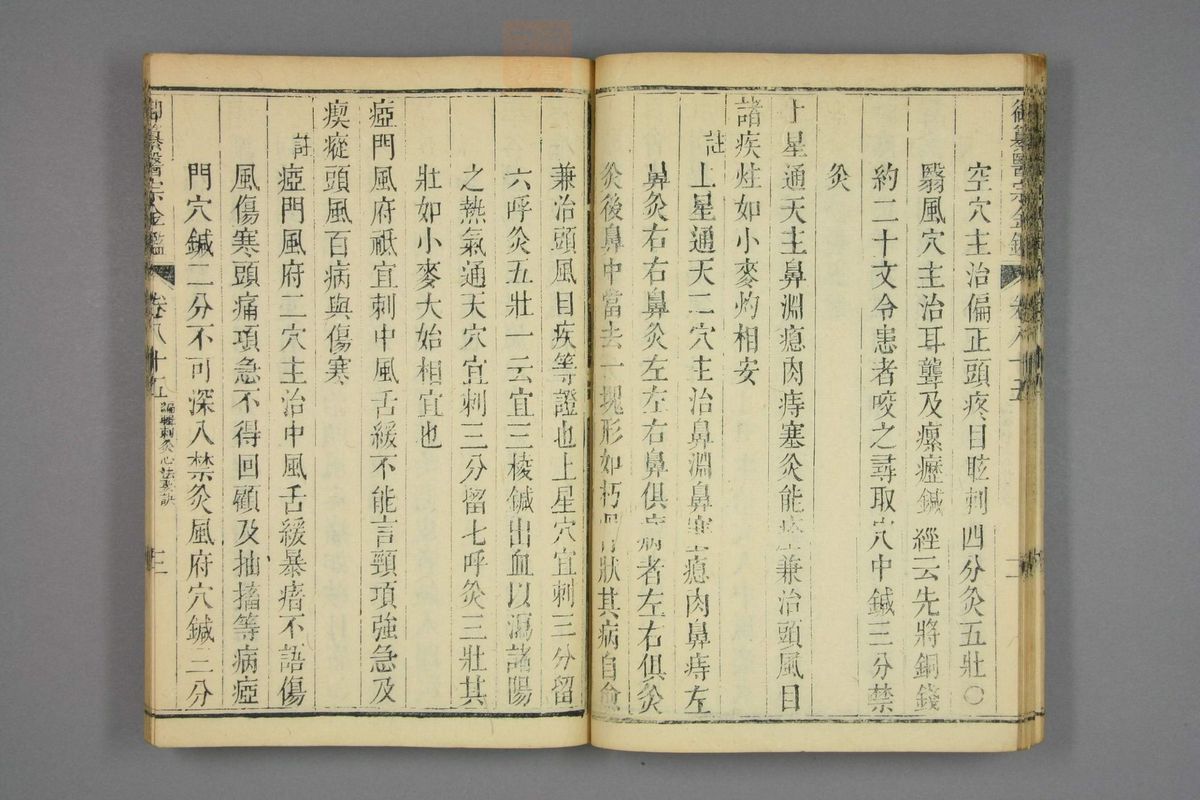 御纂醫宗金鑑 卷八十五
空穴主治偏正頭疼目眩刺四分灸五壯〇
翳風穴主治耳聾及瘰癧鍼經云先將銅錢
約二十文令患者咬之尋取穴中鍼三分禁
灸
上星通天主鼻淵瘜肉痔塞灸能兼治頭風目
諸疾炷如小麥灼相安
註
上星通天二穴主治鼻淵鼻塞瘜肉鼻痔左
鼻灸右右鼻灸左左右鼻俱病者左右俱灸
灸後鼻中當去一塊形如朽狀其病自愈
兼治頭風目疾等證也上星穴宜刺三分留
六呼灸五壯一云宜三棱鍼出血以瀉諸陽
之熱氣通天穴宜刺三分留七呼灸三壯其
壯如小麥大始相宜也
瘂門風府祇宜刺中風舌緩不能言頸項強急及
瘈瘲頭風百病與傷寒
註
瘂門風府二穴主治中風舌緩暴瘖不語傷
風傷寒頭痛項急不得回顧及抽搐等病瘂
門穴鍼二分不可深入禁灸風府穴鍼二分
御纂醫宗金鑑 卷八十五 編輯刺灸心法要訣